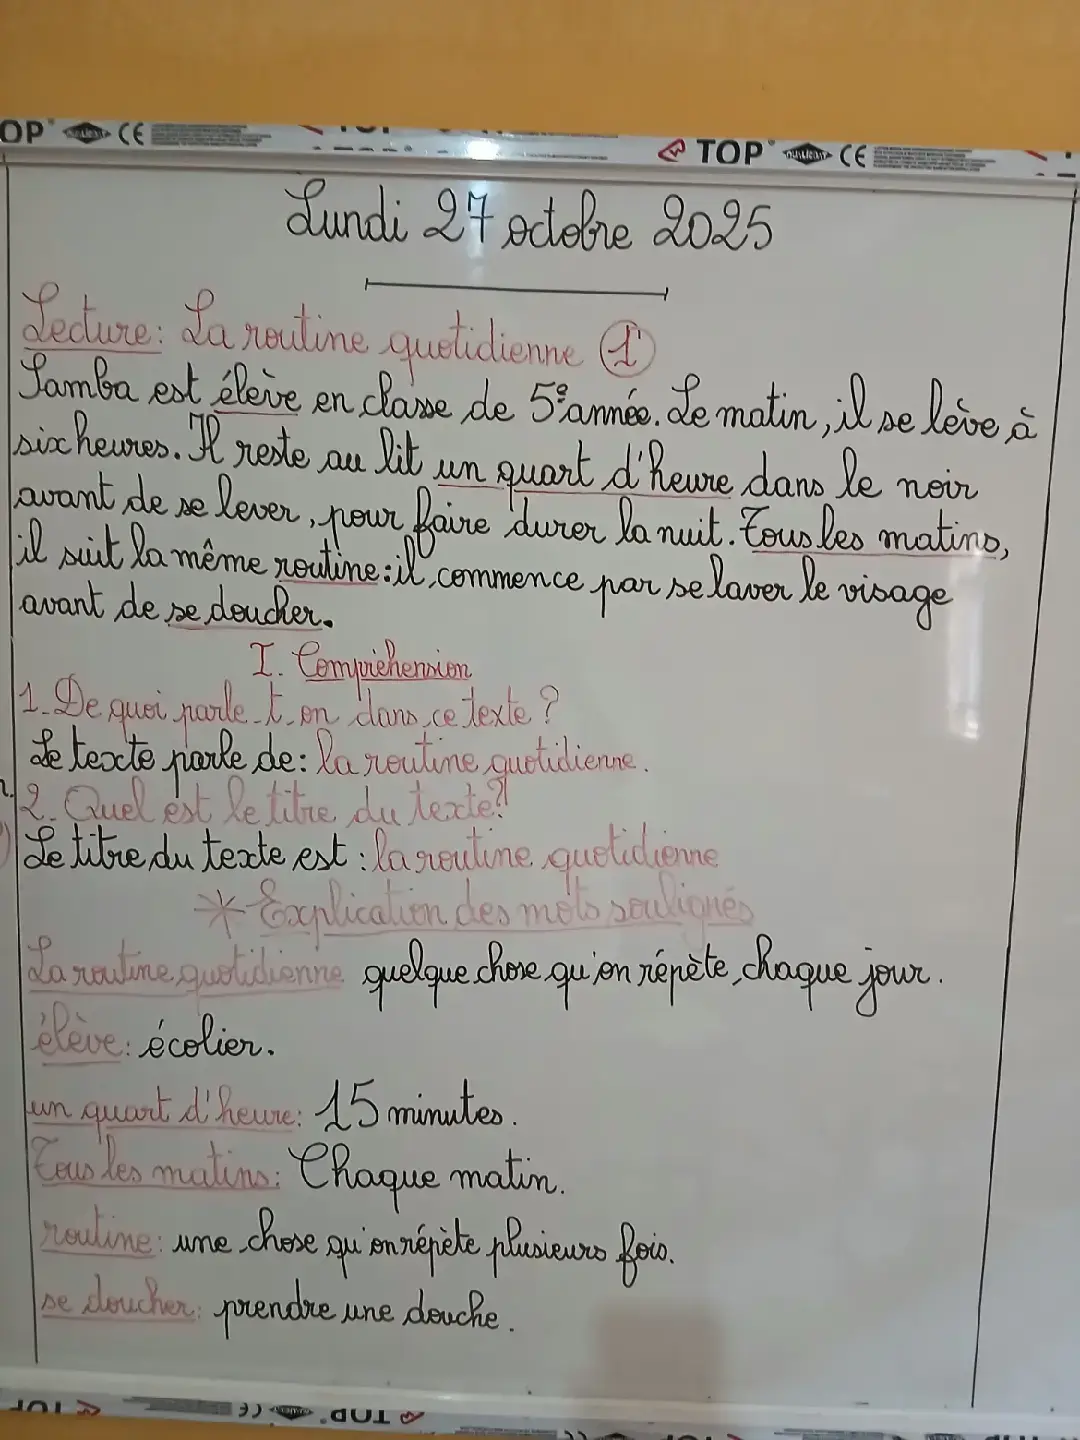 OP CE
TOP CE
Lundi 27 octobre 2025
Lecture: La routine quotidienne 1
Samba est élève en classe de 5e année. Le matin, il se lève à
six heures. Il reste au lit un quart d'heure dans le noir
avant de se lever, pour faire durer la nuit. Tous les matins,
il suit la même routine: il commence par se laver le visage
avant de se doucher.
I. Compréhension
1. De quoi parle-t-on dans ce texte ?
Le texte parle de: la routine quotidienne.
2. Quel est le titre du texte?
Le titre du texte est : la routine quotidienne
* Explication des mots soulignés
La routine quotidienne quelque chose qu'on répète chaque jour.
élève: écolier.
un quart d'heure: 15 minutes.
Tous les matins: Chaque matin.
routine: une chose qu'on répète plusieurs fois.
se doucher: prendre une douche.
TOP CE